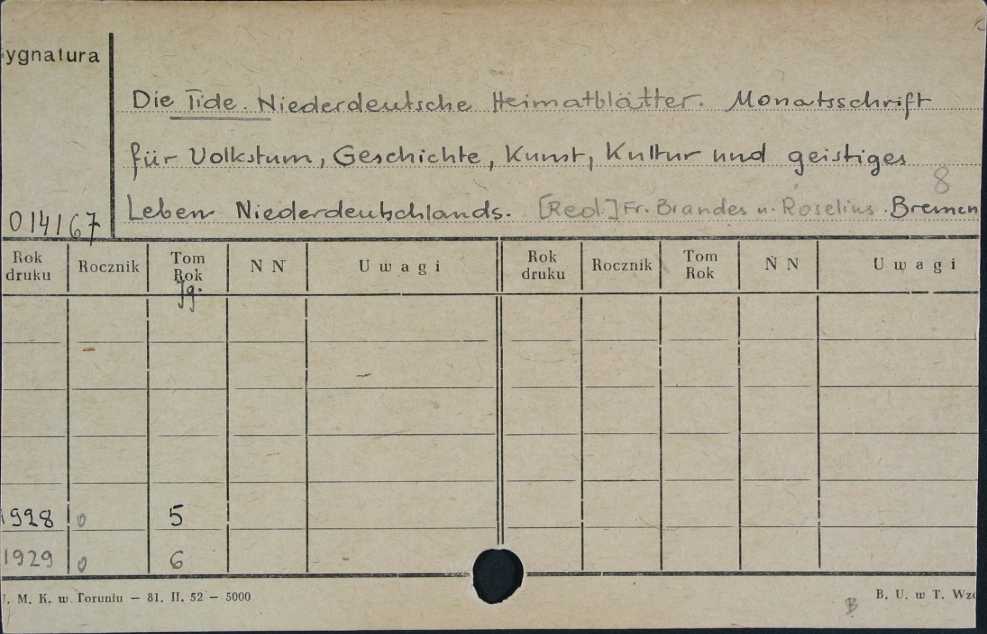 ygnatura
Die Tide. Niederdeutsche Heimatblätter. Monatsschrift
für Volkstum, Geschichte, Kunst, Kultur und geistiges
8
Leben Niederdeutschlands. [Red.] Fr. Brandes u. Roselius. Bremen
014167
Rok druku Rocznik Tom Rok N N U w a g i Rok druku Rocznik Tom Rok N N U w a g i
Jg.
1928 0 5
1929 0 6
M. K. w Toruniu — 81. II. 52 — 5000
B. U. w T.
B